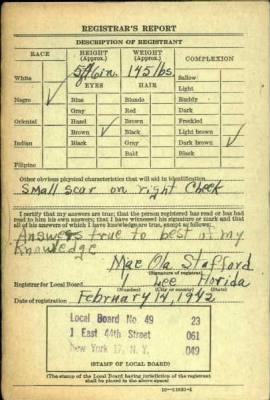 REGISTRAR'S REPORT
DESCRIPTION OF REGISTRANT
RACE
HEIGHT
(Approx.)
WEIGHT
(Approx.)
COMPLEXION
White
5 ft 6 in.
145 lbs.
Sallow
EYES
HAIR
Light
Negro ✓
Blue
Blonde
Ruddy
Gray
Red
Dark
Oriental
Hazel
Brown ✓
Freckled
Brown ✓
Black
Light brown ✓
Indian
Black
Gray
Dark brown
Bald
Black
Filipino
Other obvious physical characteristics that will aid in identification
Small scar on right Cheek
I certify that my answers are true; that the person registered has read or has had
read to him his own answers; that I have witnessed his signature or mark and that
all of his answers of which I have knowledge are true, except as follows:
Answers true to best of my
Knowledge
Mae Ola Stafford
(Signature of registrar)
Registrar for Local Board
Lee Florida
(Number) (City or county) (State)
Date of registration February 14, 1942
Local Board No. 49 23
1 East 44th Street 061
New York 17, N. Y. 049
(STAMP OF LOCAL BOARD)
(The stamp of the Local Board having jurisdiction of the registrant
shall be placed in the above space)